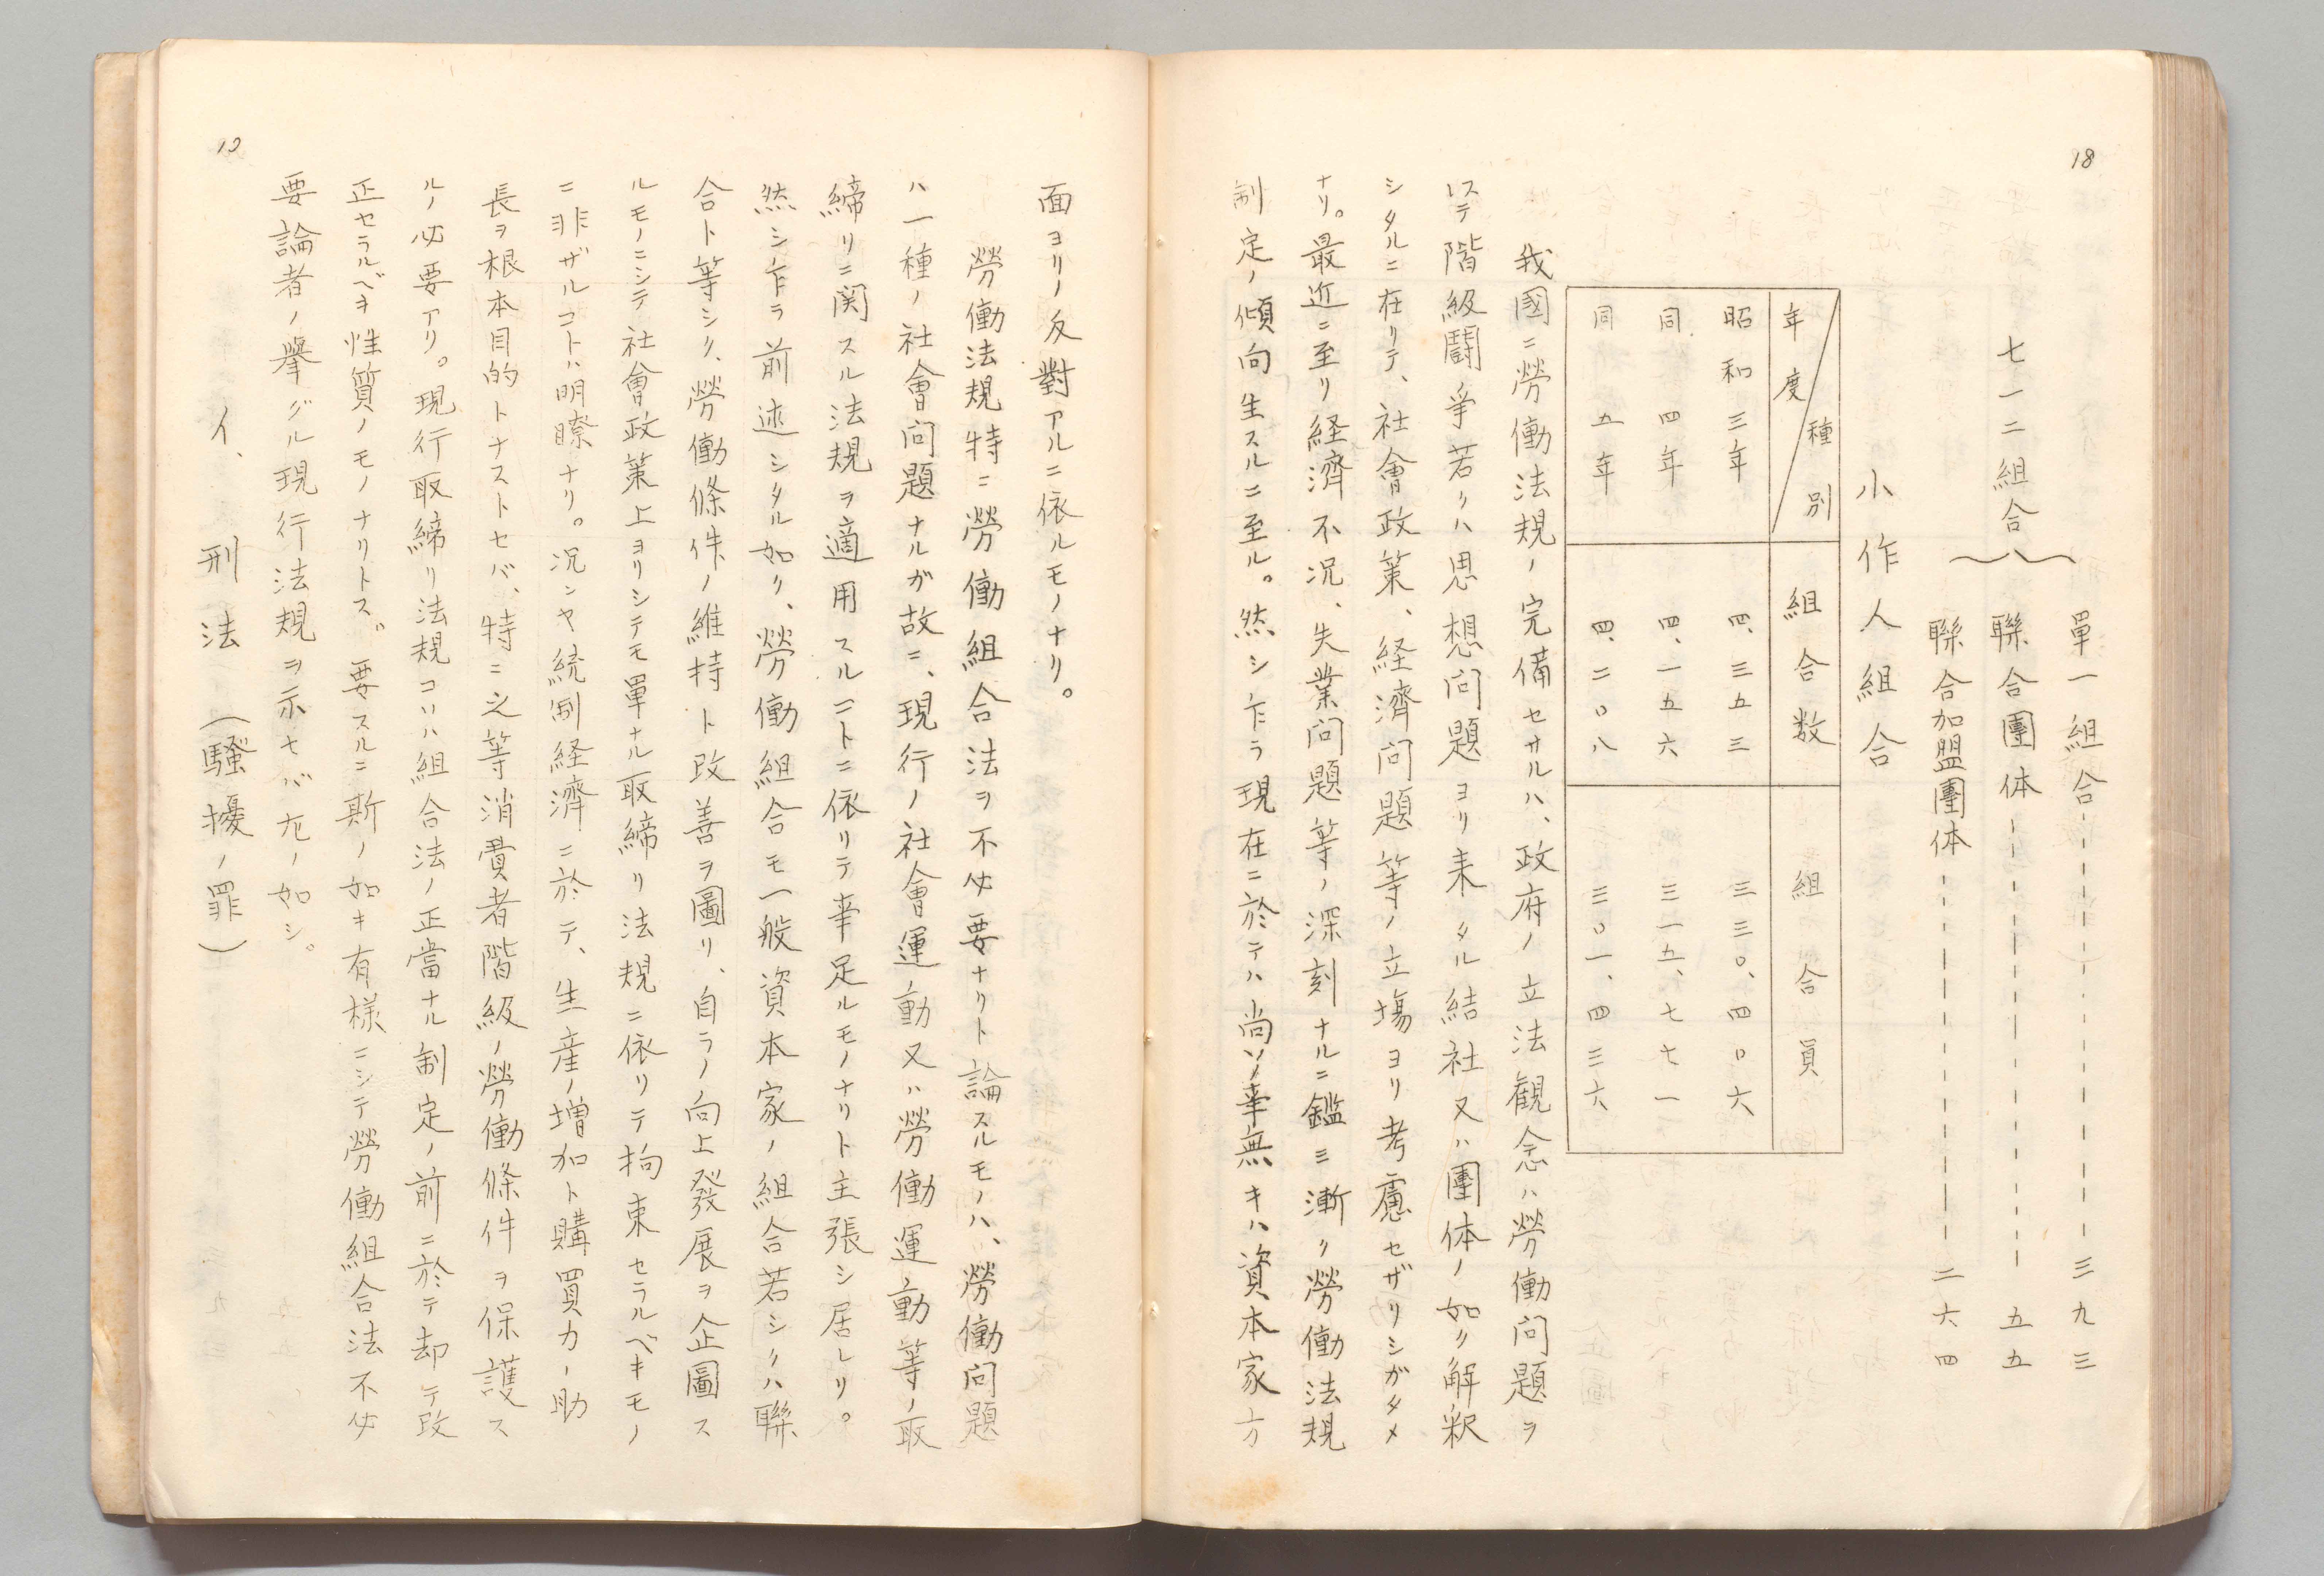 18
單一組合 三九三
七一二組合
聯合團体 五五
聯合加盟團体 二六四
小作人組合
年度 種別 組合数 組合員
昭和三年 四、三五三 三三〇、四〇六
同四年 四、一五六 三一五、七七一
同五年 四、二〇八 三〇一、四三六
我國ニ勞働法規ノ完備セサルハ、政府ノ立法観念ハ勞働問題ヲ
以テ階級闘爭若クハ思想問題ヨリ来タル結社又ハ團体ノ如ク解釈
シタルニ在リテ、社會政策、経濟問題等ノ立場ヨリ考慮セザリシガタメ
ナリ。最近ニ至リ経濟不況、失業問題等ノ深刻ナルニ鑑ミ漸ク勞働法規
制定ノ傾向生スルニ至ル。然シ乍ラ現在ニ於テハ尚ソノ事無キハ資本家方
面ヨリノ反對アルニ依ルモノナリ。
勞働法規特ニ勞働組合法ヲ不必要ナリト論スルモノハ、勞働問題
ハ一種ノ社會問題ナルガ故ニ、現行ノ社會運動又ハ勞働運動等ノ取
締リニ関スル法規ヲ適用スルコトニ依リテ事足ルモノナリト主張シ居レリ。
然シ乍ラ前述シタル如ク、勞働組合モ一般資本家ノ組合若シクハ聯
合ト等シク、勞働條件ノ維持ト改善ヲ圖リ、自ラノ向上發展ヲ企圖ス
ルモノニシテ社會政策上ヨリシテモ單ナル取締リ法規ニ依リテ拘束セラルベキモノ
ニ非ザルコトハ明瞭ナリ。况ンヤ統制経濟ニ於テ、生産ノ増加ト購買力ノ助
長ヲ根本目的トナストセバ、特ニ之等消費者階級ノ勞働條件ヲ保護ス
ルノ必要アリ。現行取締リ法規コソハ組合法ノ正當ナル制定ノ前ニ於テ却テ改
正セラルベキ性質ノモノナリトス。要スルニ斯ノ如キ有様ニシテ勞働組合法不必
要論者ノ擧グル現行法規ヲ示セバ左ノ如シ。
イ、刑法（騒擾ノ罪）